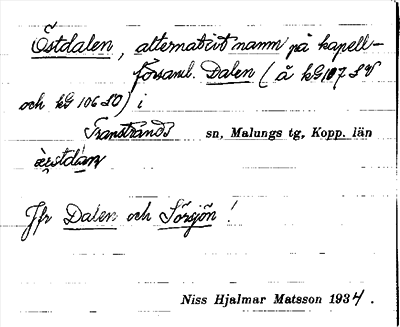 Östdalen, alternativt namn på kapell-
församl. Dalen (å kG 107 SV
och kG 106 SO) i
Transtrands sn, Malungs tg, Kopp. län
Jfr Dalen och Sörsjön!
Niss Hjalmar Matsson 1934.